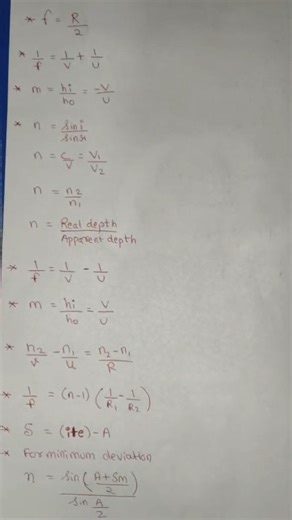 * f = R/2
* 1/f = 1/v + 1/u
* m = hi/ho = -v/u
* n = sini/sinr
n = c/v = v1/v2
n = n2/n1
n = Real depth/Apperent depth
* 1/f = 1/v - 1/u
* m = hi/ho = v/u
* n2/v - n1/u = n2-n1/R
* 1/f = (n-1) (1/R1 - 1/R2)
* δ = (i+e) - A
* For minimum deviation
n = sin(A+δm/2)/sin A/2